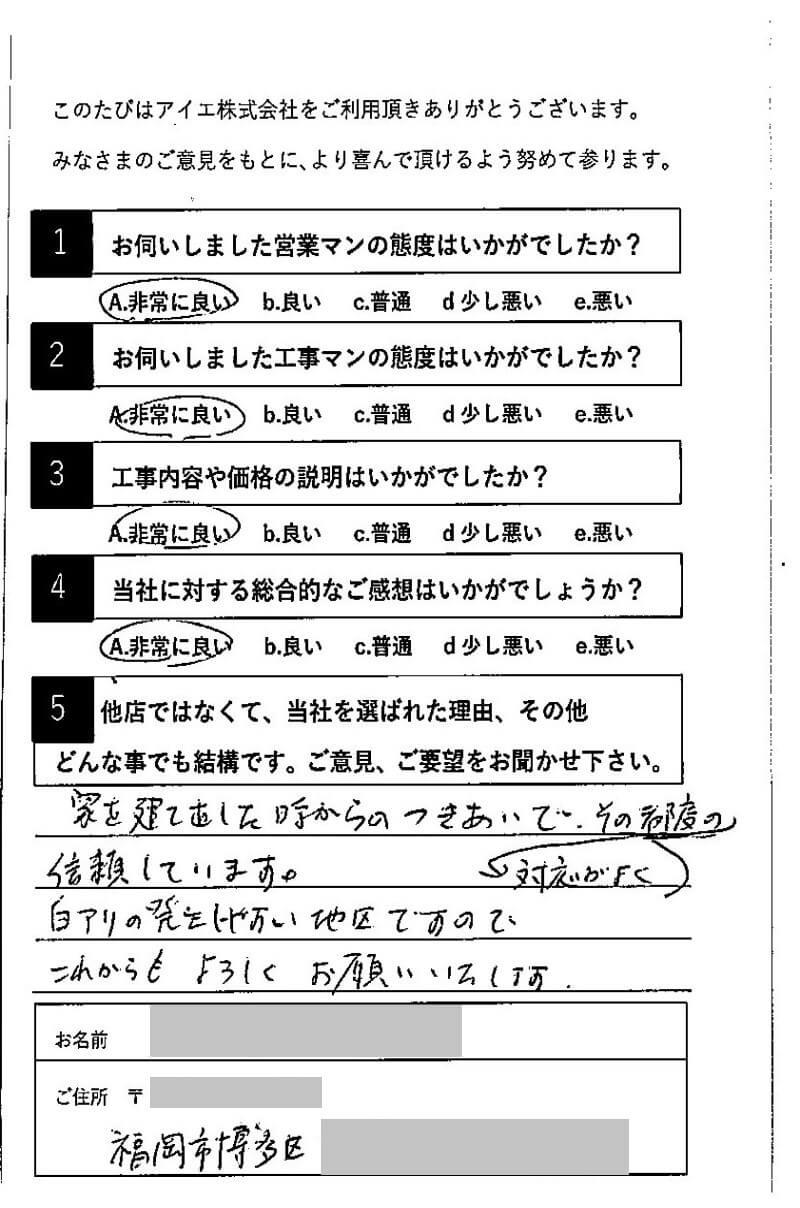 このたびはアイエ株式会社をご利用頂きありがとうございます。
みなさまのご意見をもとに、より喜んで頂けるよう努めて参ります。
1 お伺いしました営業マンの態度はいかがでしたか？
A.非常に良い b.良い c.普通 d 少し悪い e.悪い
2 お伺いしました工事マンの態度はいかがでしたか？
A.非常に良い b.良い c.普通 d 少し悪い e.悪い
3 工事内容や価格の説明はいかがでしたか？
A.非常に良い b.良い c.普通 d 少し悪い e.悪い
4 当社に対する総合的なご感想はいかがでしょうか？
A.非常に良い b.良い c.普通 d 少し悪い e.悪い
5 他店ではなくて、当社を選ばれた理由、その他
どんな事でも結構です。ご意見、ご要望をお聞かせ下さい。
家を建て直した時からのつきあいで、その都度の
対応がよく
信頼しています。
白アリの発生しやすい地区ですので、
これからも よろしく お願いいたします.
お名前
ご住所 〒
福岡市博多区